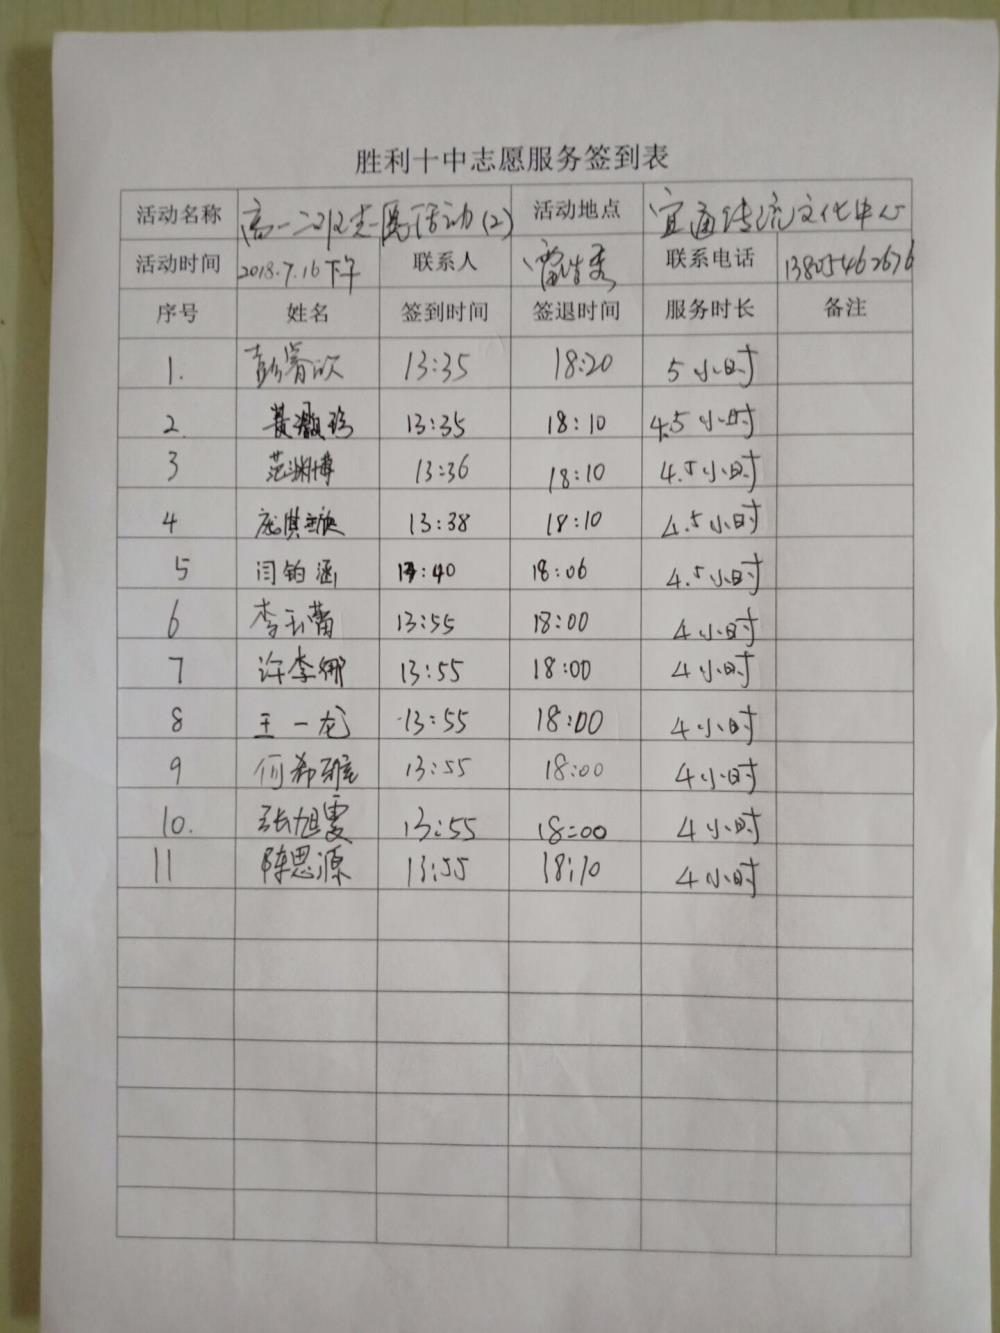 胜利十中志愿服务签到表
活动名称 高一二班志愿活动(2) 活动地点 宜通传统文化中心
活动时间 2018.7.16下午 联系人 联系电话 13805462676
序号 姓名 签到时间 签退时间 服务时长 备注
1. 彭睿欣 13:35 18:20 5小时
2. 13:35 18:10 4.5小时
3 范渊博 13:36 18:10 4.5小时
4 庞淇璇 13:38 18:10 4.5小时
5 闫钧涵 13:40 18:06 4.5小时
6 李玉蕾 13:55 18:00 4小时
7 许李娜 13:55 18:00 4小时
8 王一龙 13:55 18:00 4小时
9 何希 13:55 18:00 4小时
10. 张旭雯 13:55 18:00 4小时
11 陈思源 13:55 18:10 4小时